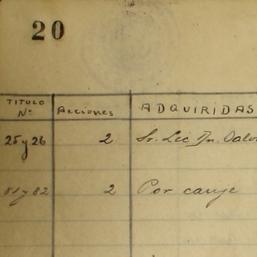 20
TITULO Nº ACCIONES ADQUIRIDAS
25 y 26 2 Sr. Lic
81 y 82 2 Por canje